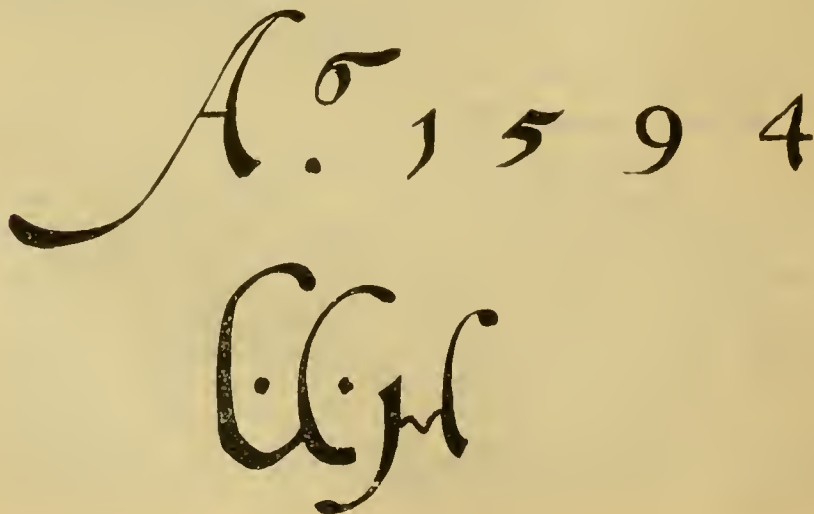 A.º 1594
C·C·H